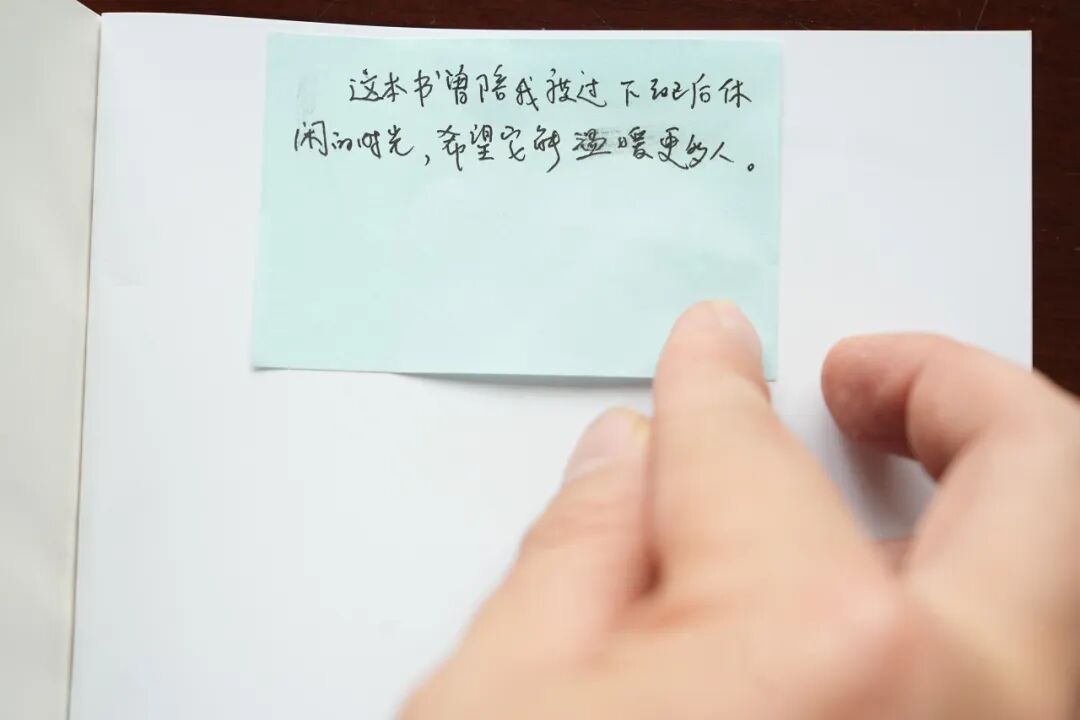 这本书曾陪我度过下班后休
闲的时光，希望它能温暖更多的人。